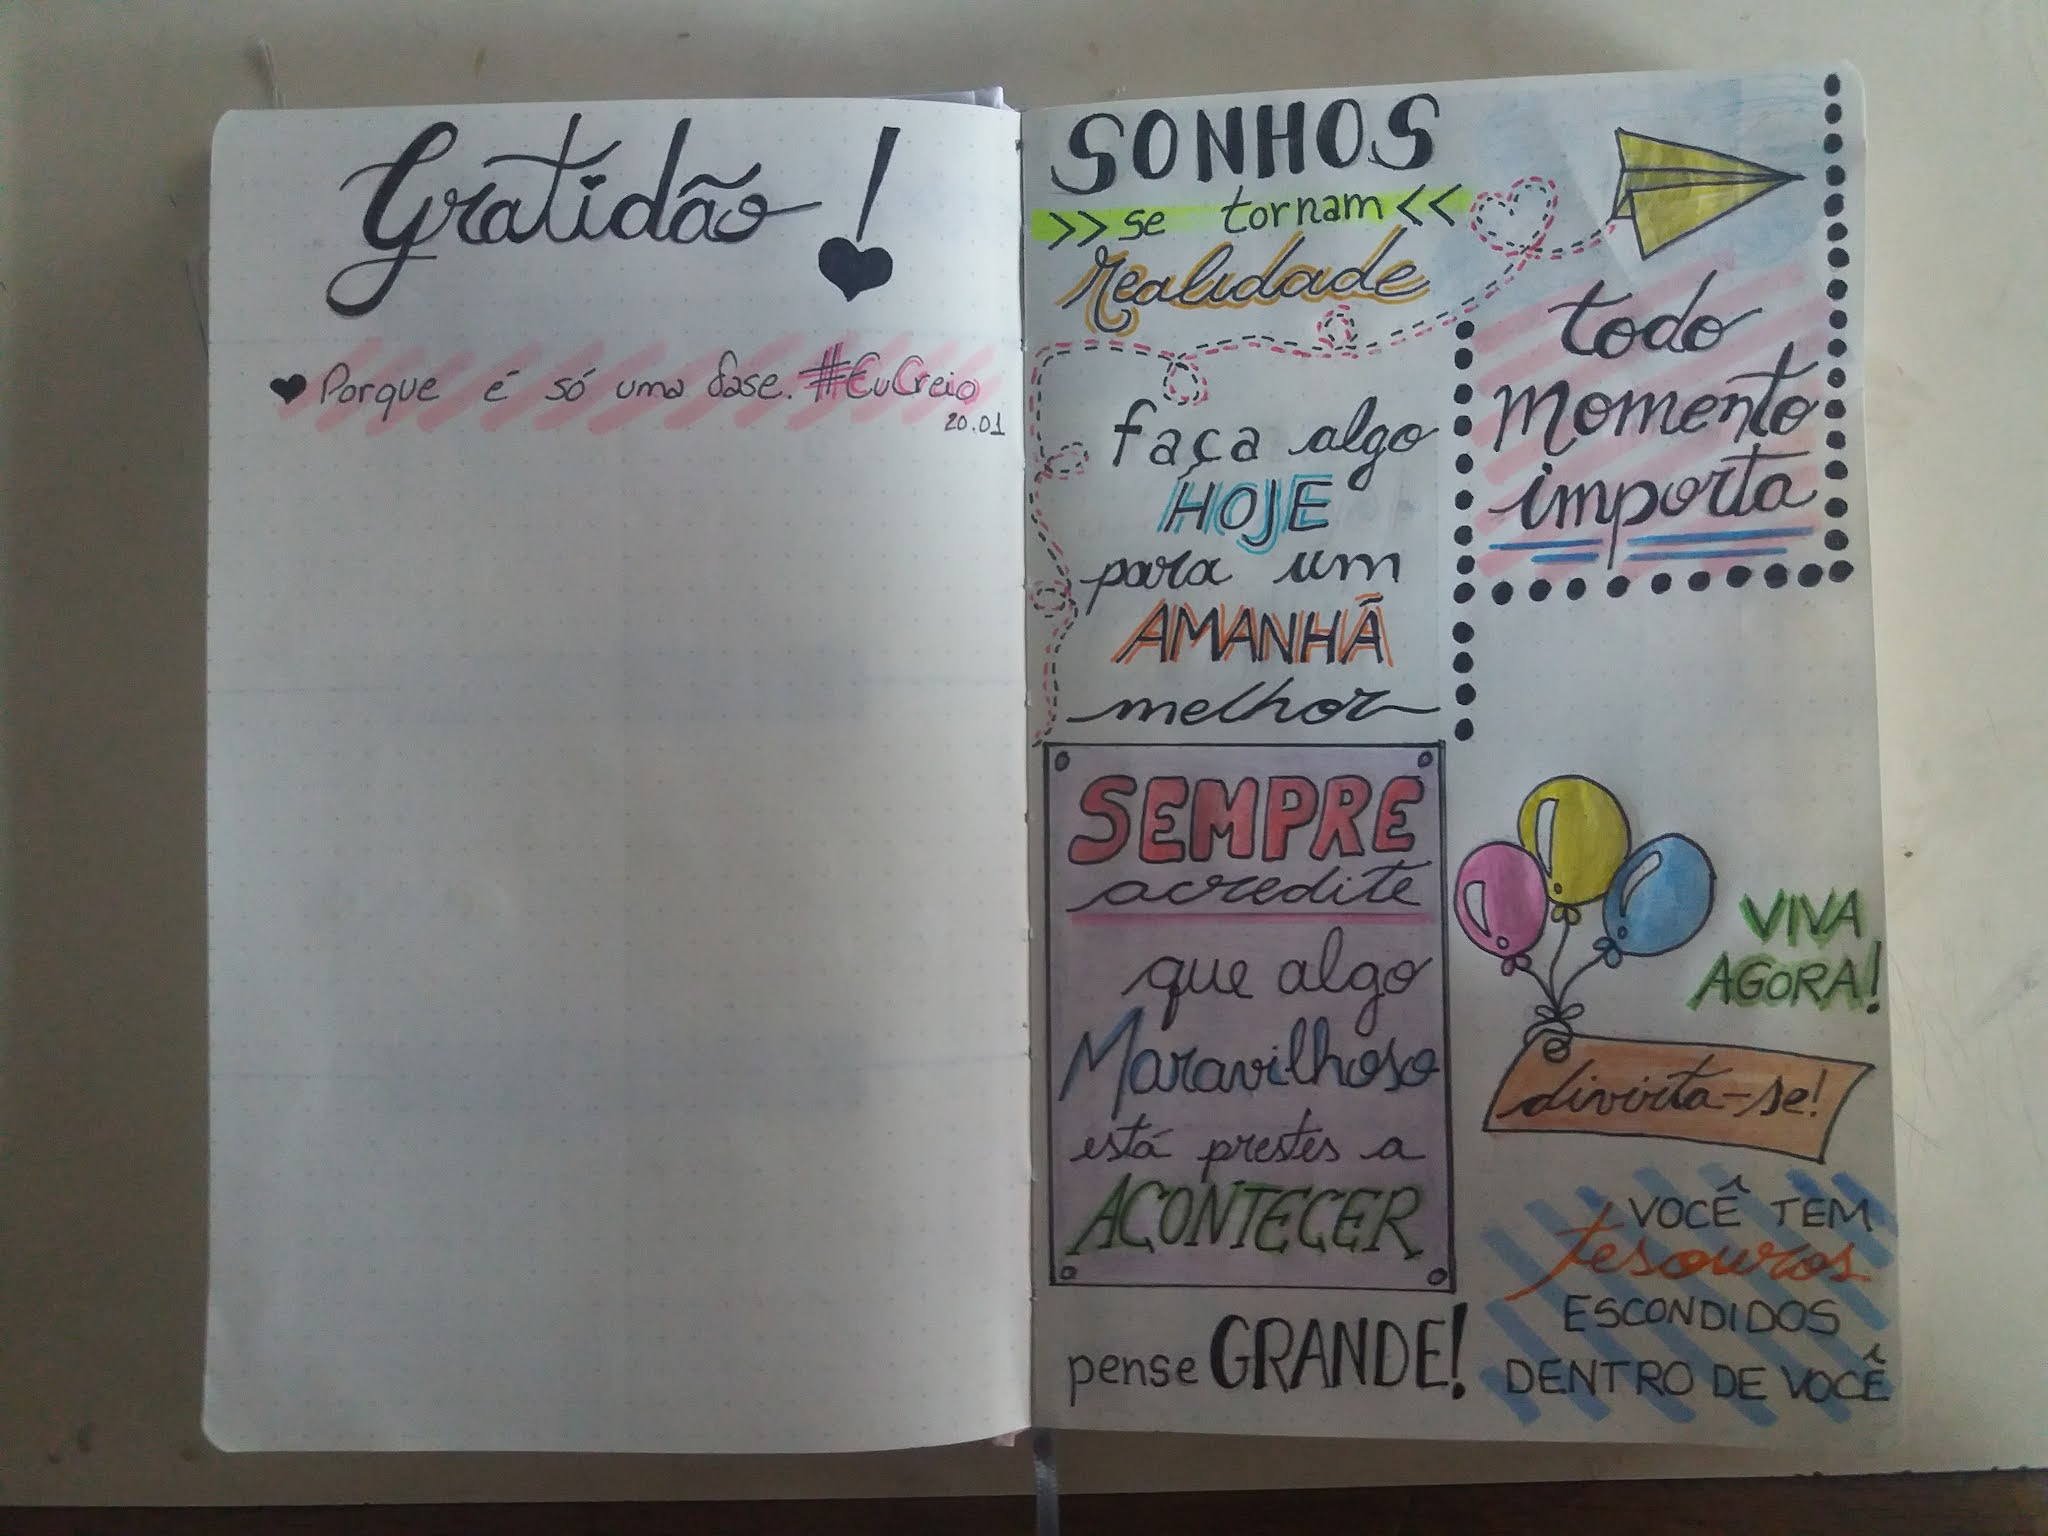 Gratidão!
Porque é só uma fase. #EuCreio
20.01
SONHOS
>> se tornam <<
Realidade
todo
momento
importa
faça algo
HOJE
para um
AMANHÃ
melhor
SEMPRE
acredite
que algo
Maravilhoso
está prestes a
ACONTECER
pense GRANDE!
VIVA
AGORA!
divirta-se!
VOCÊ TEM
tesouros
ESCONDIDOS
DENTRO DE VOCÊ